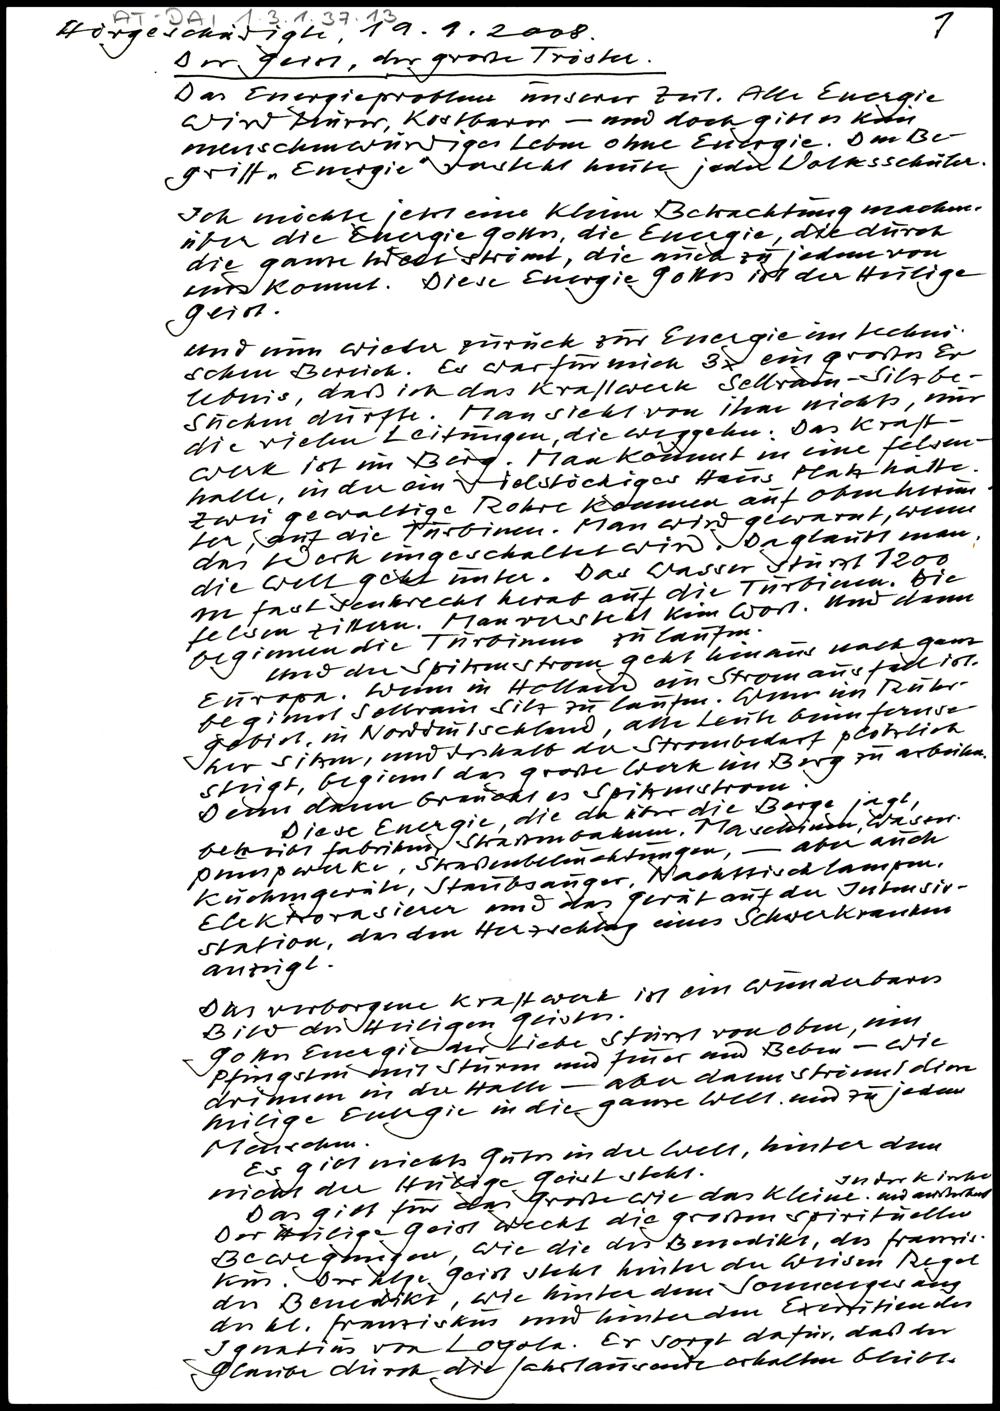 AT-DAI 1.3.1.37.13
Hörgeschädigte, 19.9.2008. 1
Der Geist, der große Tröster.
Das Energieproblem unserer Zeit. Alle Energie
wird teurer, kostbarer – und doch gibt es kein
menschenwürdiges Leben ohne Energie. Den Be-
griff „Energie" versteht heute jeder Volksschüler.
Ich möchte jetzt eine kleine Betrachtung machen
über die Energie Gottes, die Energie, die durch
die ganze Welt strömt, die auch zu jedem von
uns kommt. Diese Energie Gottes ist der Heilige
Geist.
Und nun wieder zurück zur Energie im techni-
schen Bereich. Es war für mich 3x ein großes Er-
lebnis, daß ich das Kraftwerk Sellrain-Silz be-
suchen durfte. Man sieht von ihm nichts, nur
die vielen Leitungen, die weggehen. Das Kraft-
werk ist im Berg. Man kommt in eine Felsen-
halle, in der ein vielstöckiges Haus Platz hätte.
Zwei gewaltige Rohre kommen auf oben herun-
ter, auf die Turbinen. Man wird gewarnt, wenn
das Werk eingeschaltet wird. Da glaubt man,
die Welt geht unter. Das Wasser stürzt 1200
m fast senkrecht herab auf die Turbinen. Die
Felsen zittern. Man versteht kein Wort. Und dann
beginnen die Turbinen zu laufen.
Und der Spitzenstrom geht hinaus nach ganz
Europa. Wenn in Holland ein Stromausfall ist,
beginnt Sellrain Silz zu laufen. Wenn im Ruhr-
gebiet, in Norddeutschland, alle Leute beim Fernse-
her sitzen, und deshalb der Strombedarf plötzlich
steigt, beginnt das große Werk im Berg zu arbeiten.
Denn dann braucht es Spitzenstrom.
Diese Energie, die da über die Berge jagt,
betreibt Fabriken, Straßenbahnen, Maschinen, Wasser-
pumpwerke, Straßenbeleuchtungen, – aber auch
Küchengeräte, Staubsauger, Nachttischlampen,
Elektrorasierer und das Gerät auf der Intensiv-
station, das den Herzschlag eines Schwerkranken
anzeigt.
Das verborgene Kraftwerk ist ein wunderbares
Bild des Heiligen Geistes.
Gottes Energie der Liebe stürzt von oben, um
Pfingsten mit Sturm und Feuer und Beben – wie
drinnen in der Halle – aber dann strömt diese
heilige Energie in die ganze Welt und zu jedem
Menschen.
Es gibt nichts Gutes in der Welt, hinter dem
nicht der Heilige Geist steht.
Das gilt für das Große wie das Kleine. In der Kirche
und
Der Heilige Geist weckt die großen spirituellen
Bewegungen, wie die des Benedikt, des Franzis-
kus. Der hlge Geist steht hinter der weisen Regel
des Benedikt, wie hinter dem Sonnengesang
des hl. Franziskus und hinter den Exerzitien des
Ignatius von Loyola. Er sorgt dafür, daß der
Glaube durch die Jahrtausende erhalten bleibt.